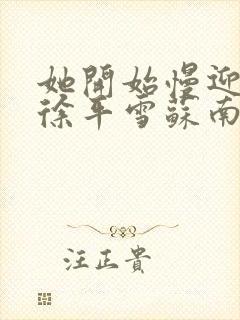 她開始慢迎
徐平雪蘇南
汪正貴